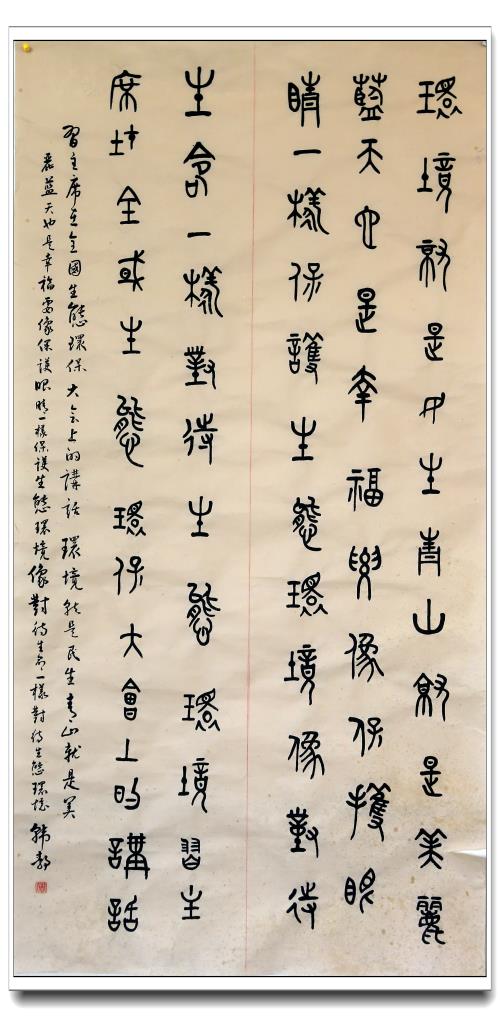 環境就是民生青山就是美麗
藍天也是幸福要像保護眼
睛一樣保護生態環境像對待
生命一樣對待生態環境習主
席在全國生態環保大會上的講話
習主席在全國生態環保大會上的講話環境就是民生青山就是美
麗藍天也是幸福要像保護眼睛一樣保護生態環境像對待生命一樣對待生態環境